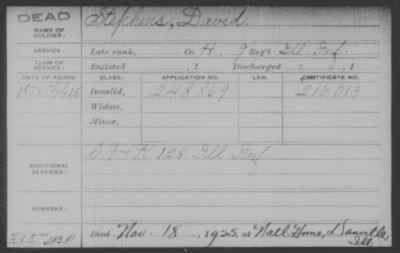 DEAD
Stephens, David.
NAME OF SOLDIER:
SERVICE: Late rank, Co. A. 9 Reg't Ill Inf.
TERM OF SERVICE: Enlisted , 1 Discharged , 1
DATE OF FILING. CLASS. APPLICATION NO. LAW. CERTIFICATE NO.
Invalid, 248,869 216,013
Widow,
Minor,
ADDITIONAL SERVICES: K 128 Ill Inf
REMARKS:
Died Nov. 18, 1925, at Natl Home, Danville, Ill.